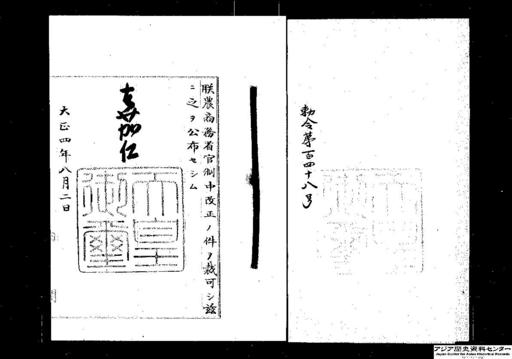 朕農商務省官制中改正ノ件ヲ裁可シ茲
ニ之ヲ公布セシム
嘉仁
大正四年八月二日
天皇
御璽
勅令第百四十八号
アジア歴史資料センター
Japan Center for Asian Historical Records